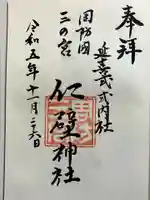 奉拝
延喜式式内社
周防国
三の宮
仁壁神社
令和五年十一月二六日